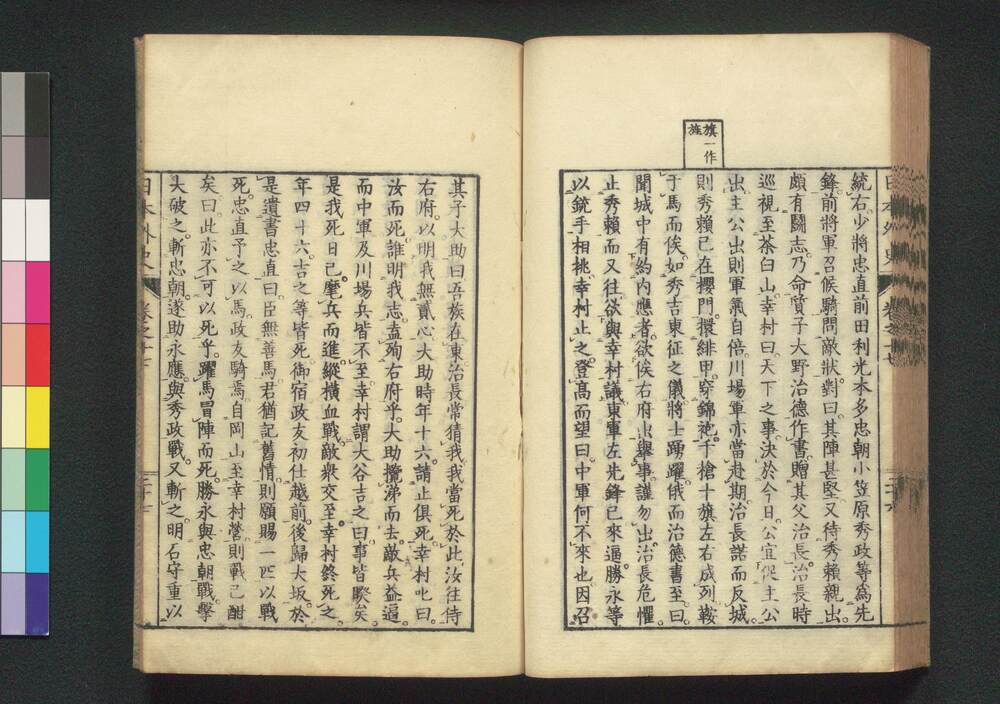 旗一作
旌
統右少將忠直前田利光本多忠朝小笠原秀政等為先
鋒前將軍召候騎問敵狀對曰其陣甚堅又待秀賴親出
頗有鬬志乃命質子大野治德作書贈其父治長治長時
巡視至茶臼山幸村曰天下之事決於今日公宜促主公
出主公出則軍氣自倍川場軍亦當赴期治長諾而反城
則秀賴已在櫻門擐緋甲穿錦袍千槍十旗左右成列鞍
于馬而俟如秀吉東征之儀將士踴躍俄而治德書至曰
聞城中有約內應者欲俟右府出舉事謹勿出治長危懼
止秀賴而又往欲與幸村議東軍左先鋒已來逼勝永等
以銃手相挑幸村止之登高而望曰中軍何不來也因召
其子大助曰吾族在東治長常猜我我當死於此汝往侍
右府以明我無貳心大助時年十六請止俱死幸村叱曰
汝而死誰明我志盍殉右府乎大助攬涕而去敵兵益逼
而中軍及川場兵皆不至幸村謂大谷吉之曰事皆睽矣
是我死日已麾兵而進縱橫血戰敵衆交至幸村終死之
年四十六吉之等皆死御宿政友初仕越前後歸大坂於
是遺書忠直曰臣無善馬君猶記舊情則願賜一匹以戰
死忠直予之以馬政友騎焉自岡山至幸村營則戰已酣
矣曰此亦不可以死乎躍馬冒陣而死勝永與忠朝戰擊
大破之斬忠朝遂助永應與秀政戰又斬之明石守重以
日本外史
卷之廿